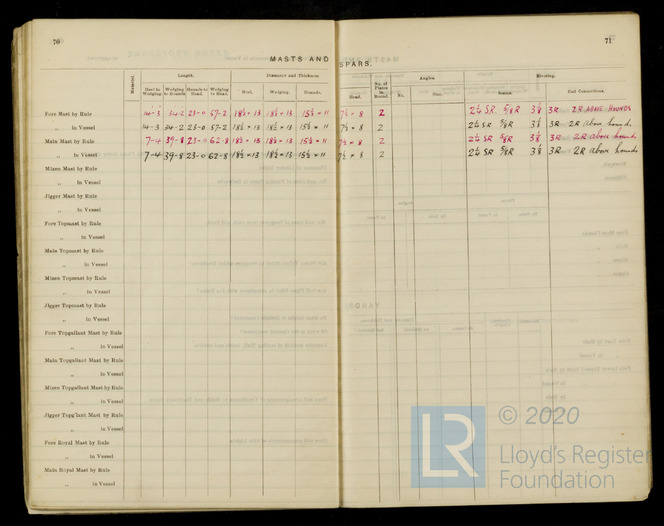 70
71
MASTS AND SPARS.
Material.
Length.
Diameter and Thickness
Angles
Riveting.
Heel to Wedging.
Wedging to Hounds
Hounds to Head.
Wedging to Head.
Heel.
Wedging.
Hounds.
Head.
No. of Plates in Round.
No.
Size.
Seams.
End Connections.
Fore Mast by Rule 14-3 34-2 23-0 57-2 18½ × 13 18½ × 13 15½ × 11 7½ × 8 2 2¼ S.R. ⅝R 3⅛ 3R 2R ABOVE HOUNDS
„ in Vessel 14-3 34-2 23-0 57-2 18½ × 13 18½ × 13 15½ × 11 7½ × 8 2 2¼ SR ⅝R 3⅛ 3R 2R above hounds
Main Mast by Rule 7-4 39-8 23-0 62-8 18½ × 13 18½ × 13 15½ × 11 7½ × 8 2 2¼ SR ⅝R 3⅛ 3R 2R above hounds
„ in Vessel 7-4 39-8 23-0 62-8 18½ × 13 18½ × 13 15½ × 11 7½ × 8 2 2¼ SR ⅝R 3⅛ 3R 2R above hounds
Mizen Mast by Rule
„ in Vessel
Jigger Mast by Rule
„ in Vessel
Fore Topmast by Rule
„ in Vessel
Main Topmast by Rule
„ in Vessel
Mizen Topmast by Rule
„ in Vessel
Jigger Topmast by Rule
„ in Vessel
Fore Topgallant Mast by Rule
„ in Vessel
Main Topgallant Mast by Rule
„ in Vessel
Mizen Topgallant Mast by Rule
„ in Vessel
Jigger Topg'lant Mast by Rule
„ in Vessel
Fore Royal Mast by Rule
„ in Vessel
Main Royal Mast by Rule
„ in Vessel
LR
© 2020
Lloyd's Register
Foundation